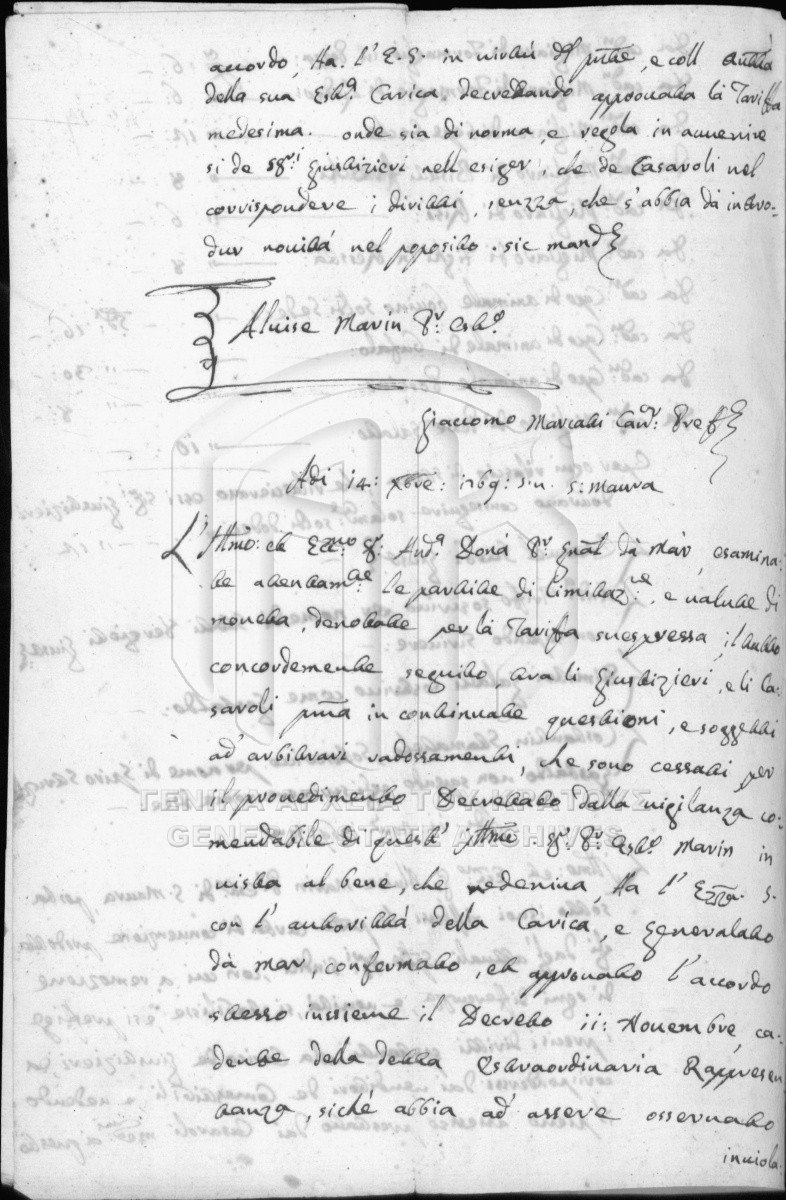 accordo, Ha. l'E. S. in virtù del pnte, e coll autttà
della sua Estra Carica. decrettando approvatta la Tariffa
medesima. onde sia di norma, e regola in avvenire
si de Sgri Giustizieri nell esiger, che de Casaroli nel
corrispondere i diritti, senzza, che s'abbia dà intro-
dur novità nel poposito. sic mand.
Aluise Marin Pr. Estro.
Giacomo Marcati Canr. Pref
Adi 14: Xbre: 1769: s.n. S: Maura
L'Illmo: et Eccmo Sr. Andra Donà Pr. Gnal dà Mar, esamina:
te atentamte le partite di limitazne, e valute di
moneta, denotate per la Tariffa suespressa, il tutto
concordemente seguito, tra li Giustizieri, e li Ca-
saroli pma in continuate questioni, e soggetti
ad' arbitrari radossamenti, che sono cessati per
il provedimento Decretato dalla vigilanza co-
mendabile di quest' Illmo. Sr. Pr. Estro. Marin in
vista al bene, che nederiva, Ha l' Ezza. S.
con l' autorittà della Carica, e Generalato
dà mar, confermato, et approvato l'accordo
stesso inssieme il Decreto 11: Novembre, ca-
dente della detta Estraordinaria Rappresen
tanza, sichè abbia ad' assere osservato
inviola-
ΓΕΝΙΚΑ ΑΡΧΕΙΑ ΤΟΥ ΚΡΑΤΟΥΣ
GENERAL STATE ARCHIVES